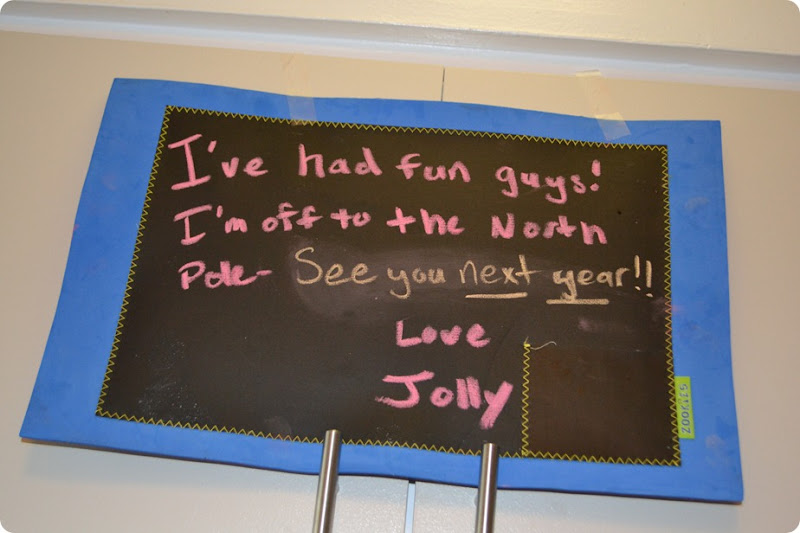 I've had fun guys!
I'm off to the North
Pole- See you next year!!
Love
Jolly
ZOOKIES